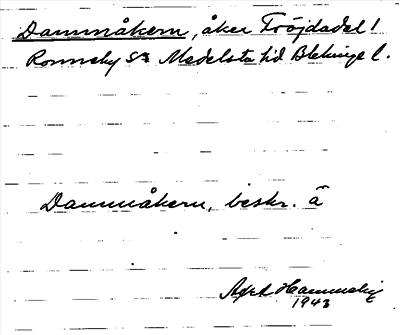 Dammåkern, åker Tröjdadel 1
Ronneby sn Medelsta hd Blekinge l.
Dammåkern, beskr. å
Axel
1943